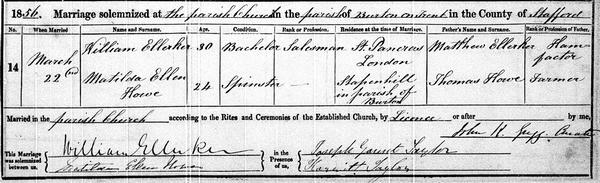 1856. Marriage solemnized at The parish Church in the parish of Burton on Trent in the County of Stafford
No. When Married Name and Surname. Age. Condition. Rank or Profession. Residence at the time of Marriage. Father's Name and Surname. Rank or Profession of Father.
14 March 22nd William Ellerker 30 Bachelor Salesman St. Pancras London Matthew Ellerker Ham factor
Matilda Ellen Howe 24 Spinster — Stapenhill in parish of Burton Thomas Howe Farmer
Married in the parish Church according to the Rites and Ceremonies of the Established Church, by Licence or after by me,
John H. Curate
This Marriage was solemnized between us, William Ellerker Matilda Ellen Howe in the Presence of us, Joseph Gaunt Taylor Harriett Taylor